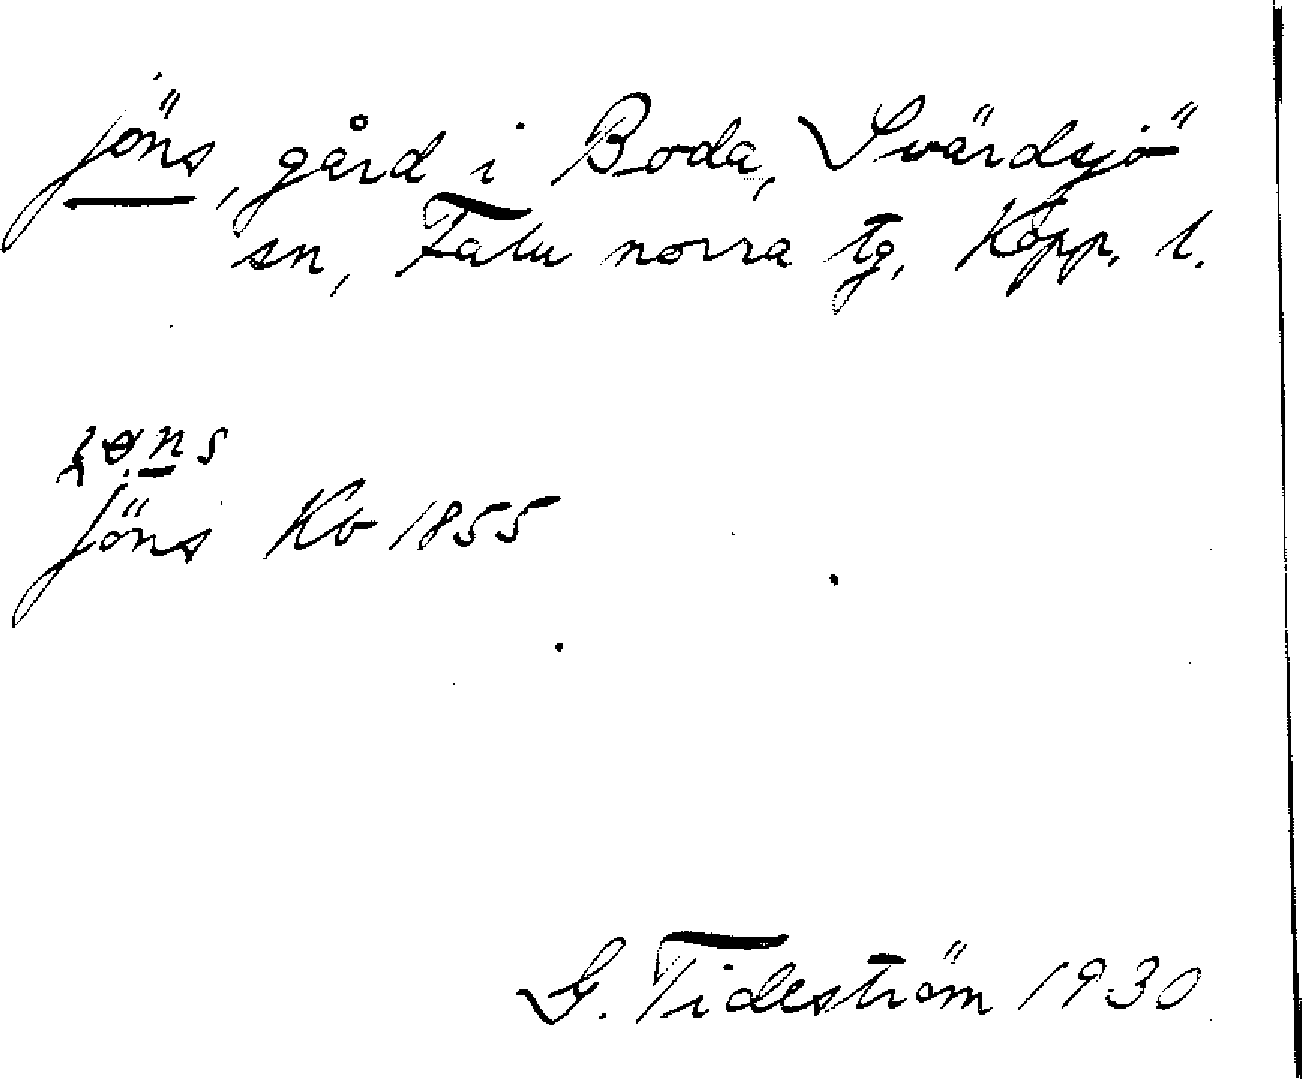 jöns, gård i Boda, Svärdsjö
sn, Falu norra tg, Kopp. l.
Jöns Kb 1855
G. Tideström 1930